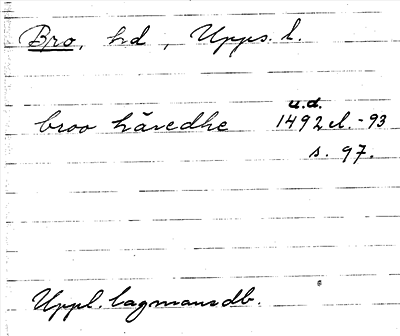 Bro, hd, Upps. l.
u.d.
broo häredhe 1492 el. -93
s. 97.
Uppl. lagmansdb.